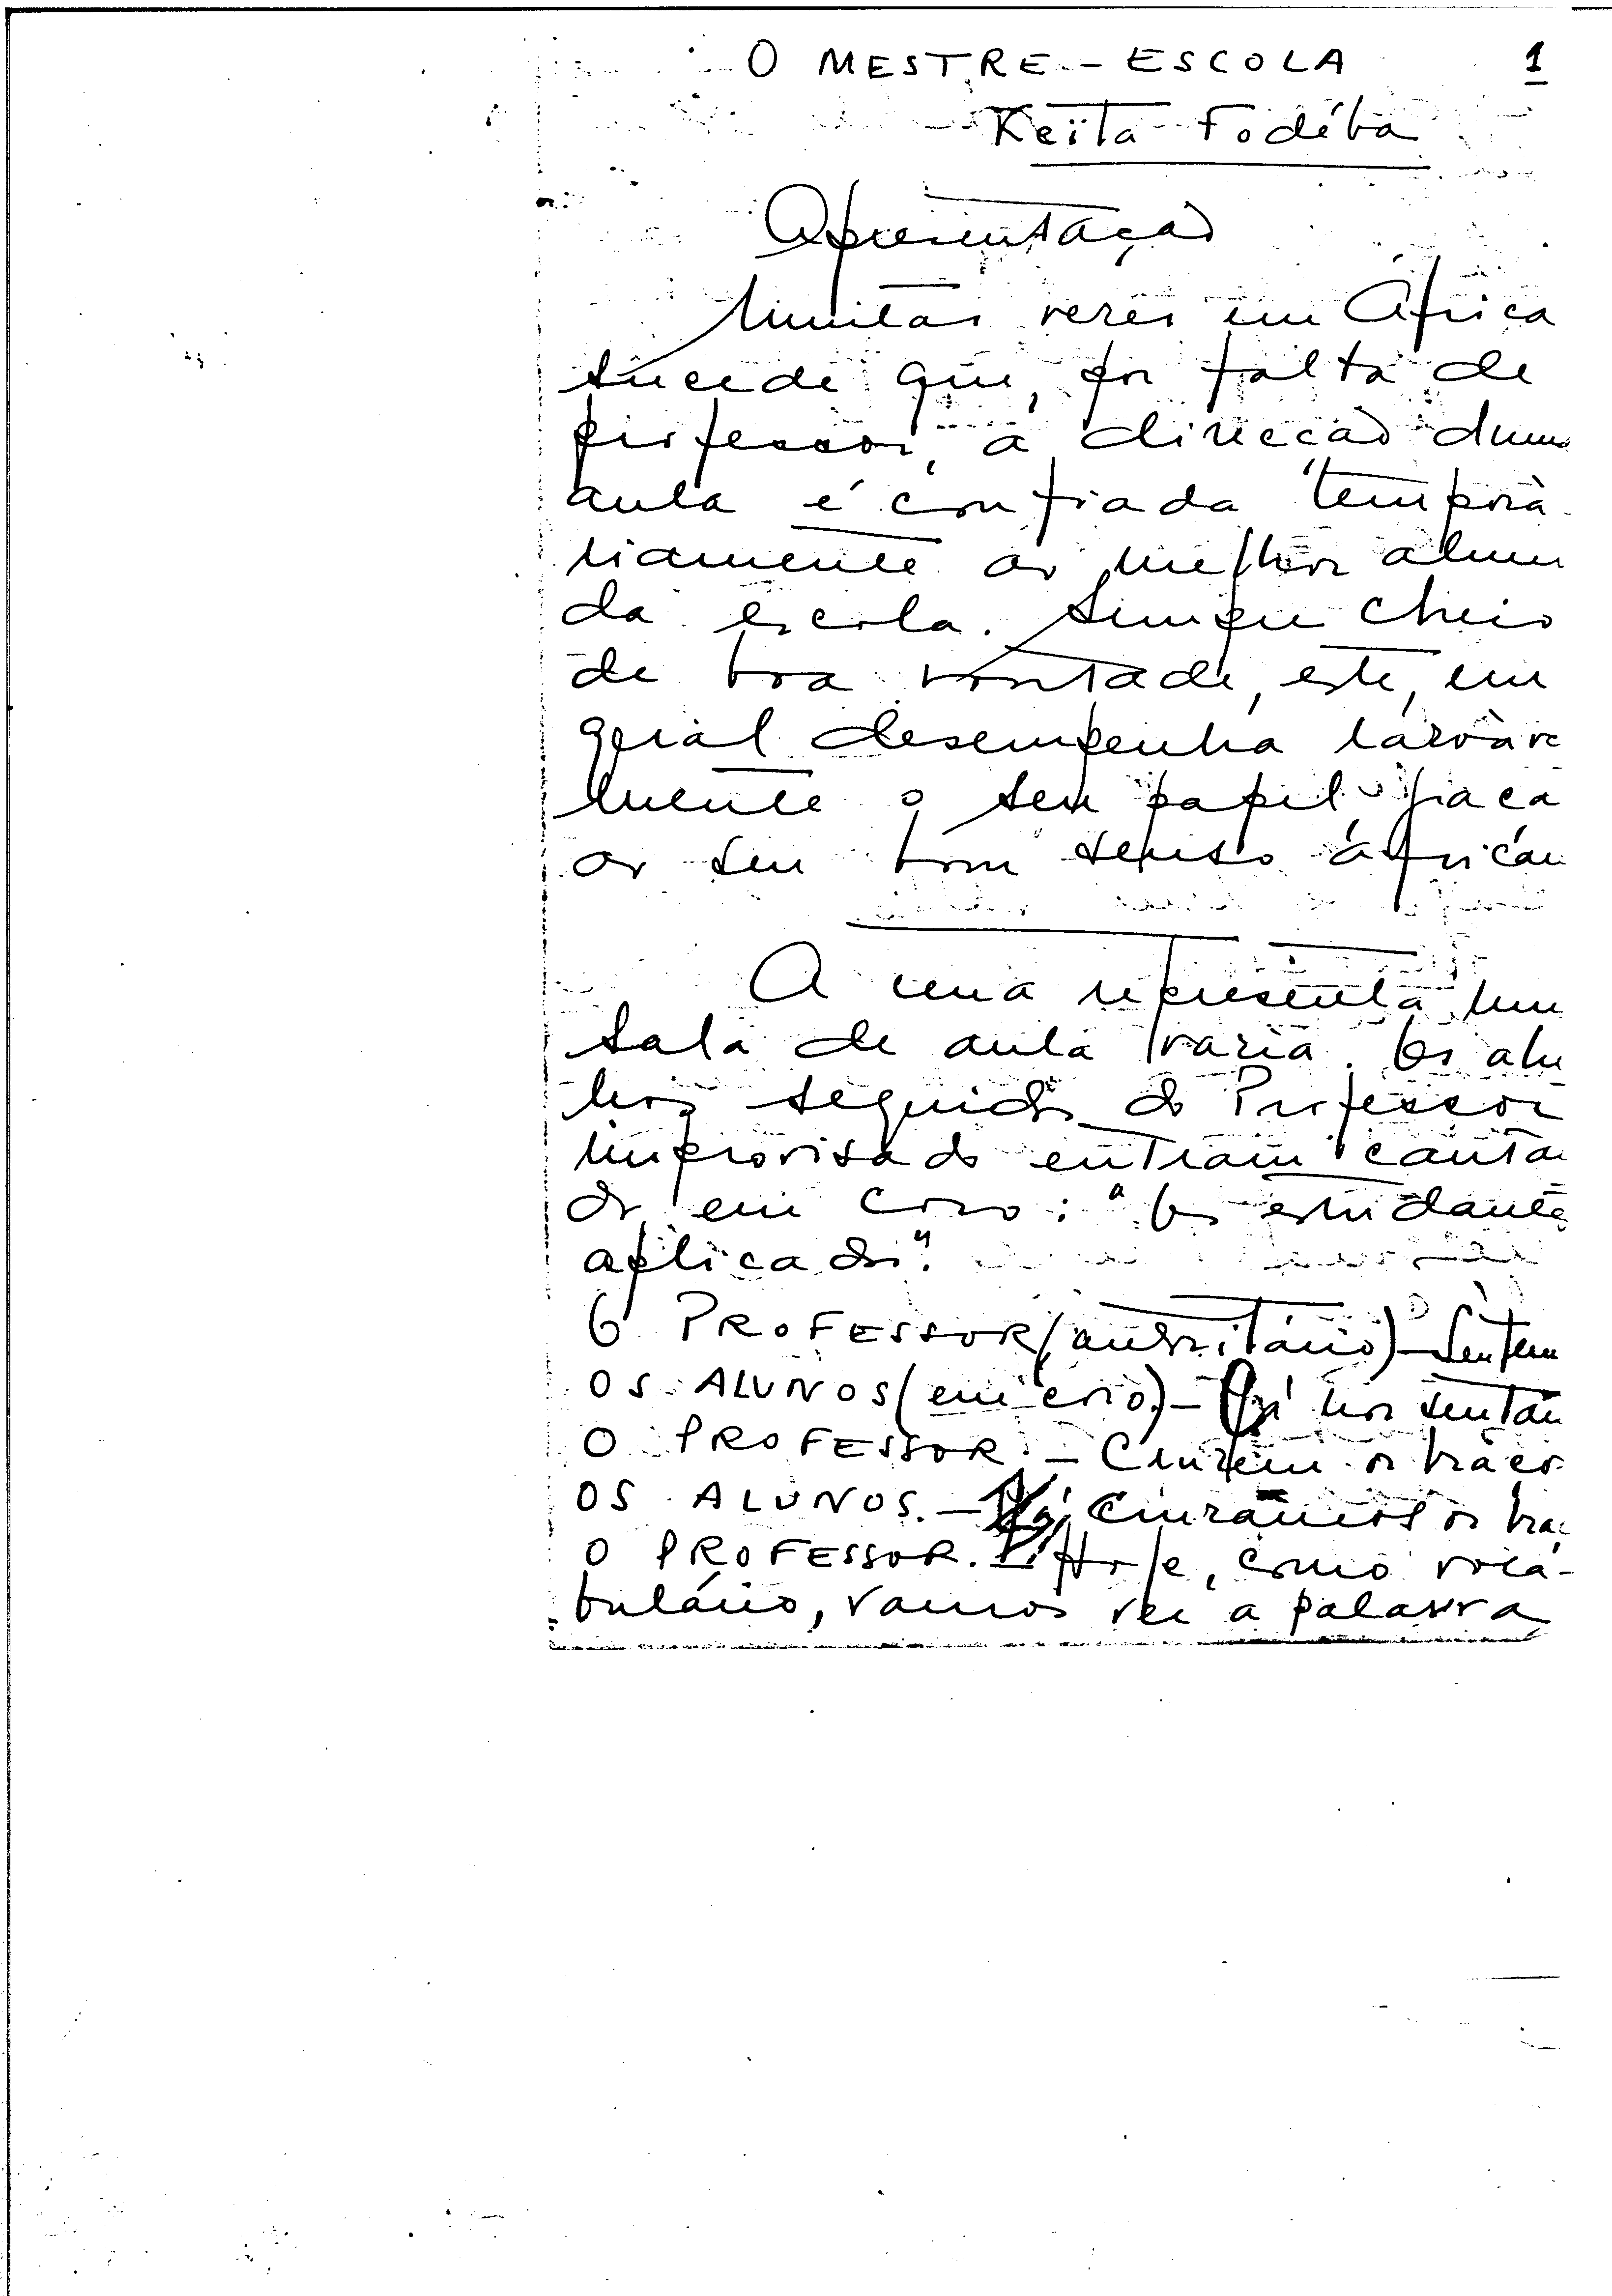 O MESTRE - ESCOLA 1
Keïta Fodéba
Apresentação
Muitas vezes em África
sucede que, por falta de
professor, a direcção duma
aula é confiada temporà
riamente ao melhor aluno
da escola. Sempre cheio
de boa vontade, este, em
geral desempenha louvàvel
mente o seu papel graça
ao seu bom senso african
A cena representa uma
sala de aula vazia. Os alu
nos seguidos do Professor
improvisado entram cantan
do em coro: "Os estudantes
aplicados".
O PROFESSOR (autoritário) - Sentem
OS ALUNOS (em coro) - Já nos sentám
O PROFESSOR - Cruzem os braços
OS ALUNOS. - Já cruzamos os bra
O PROFESSOR. - Hoje, como voca-
bulário, vamos ver a palavra